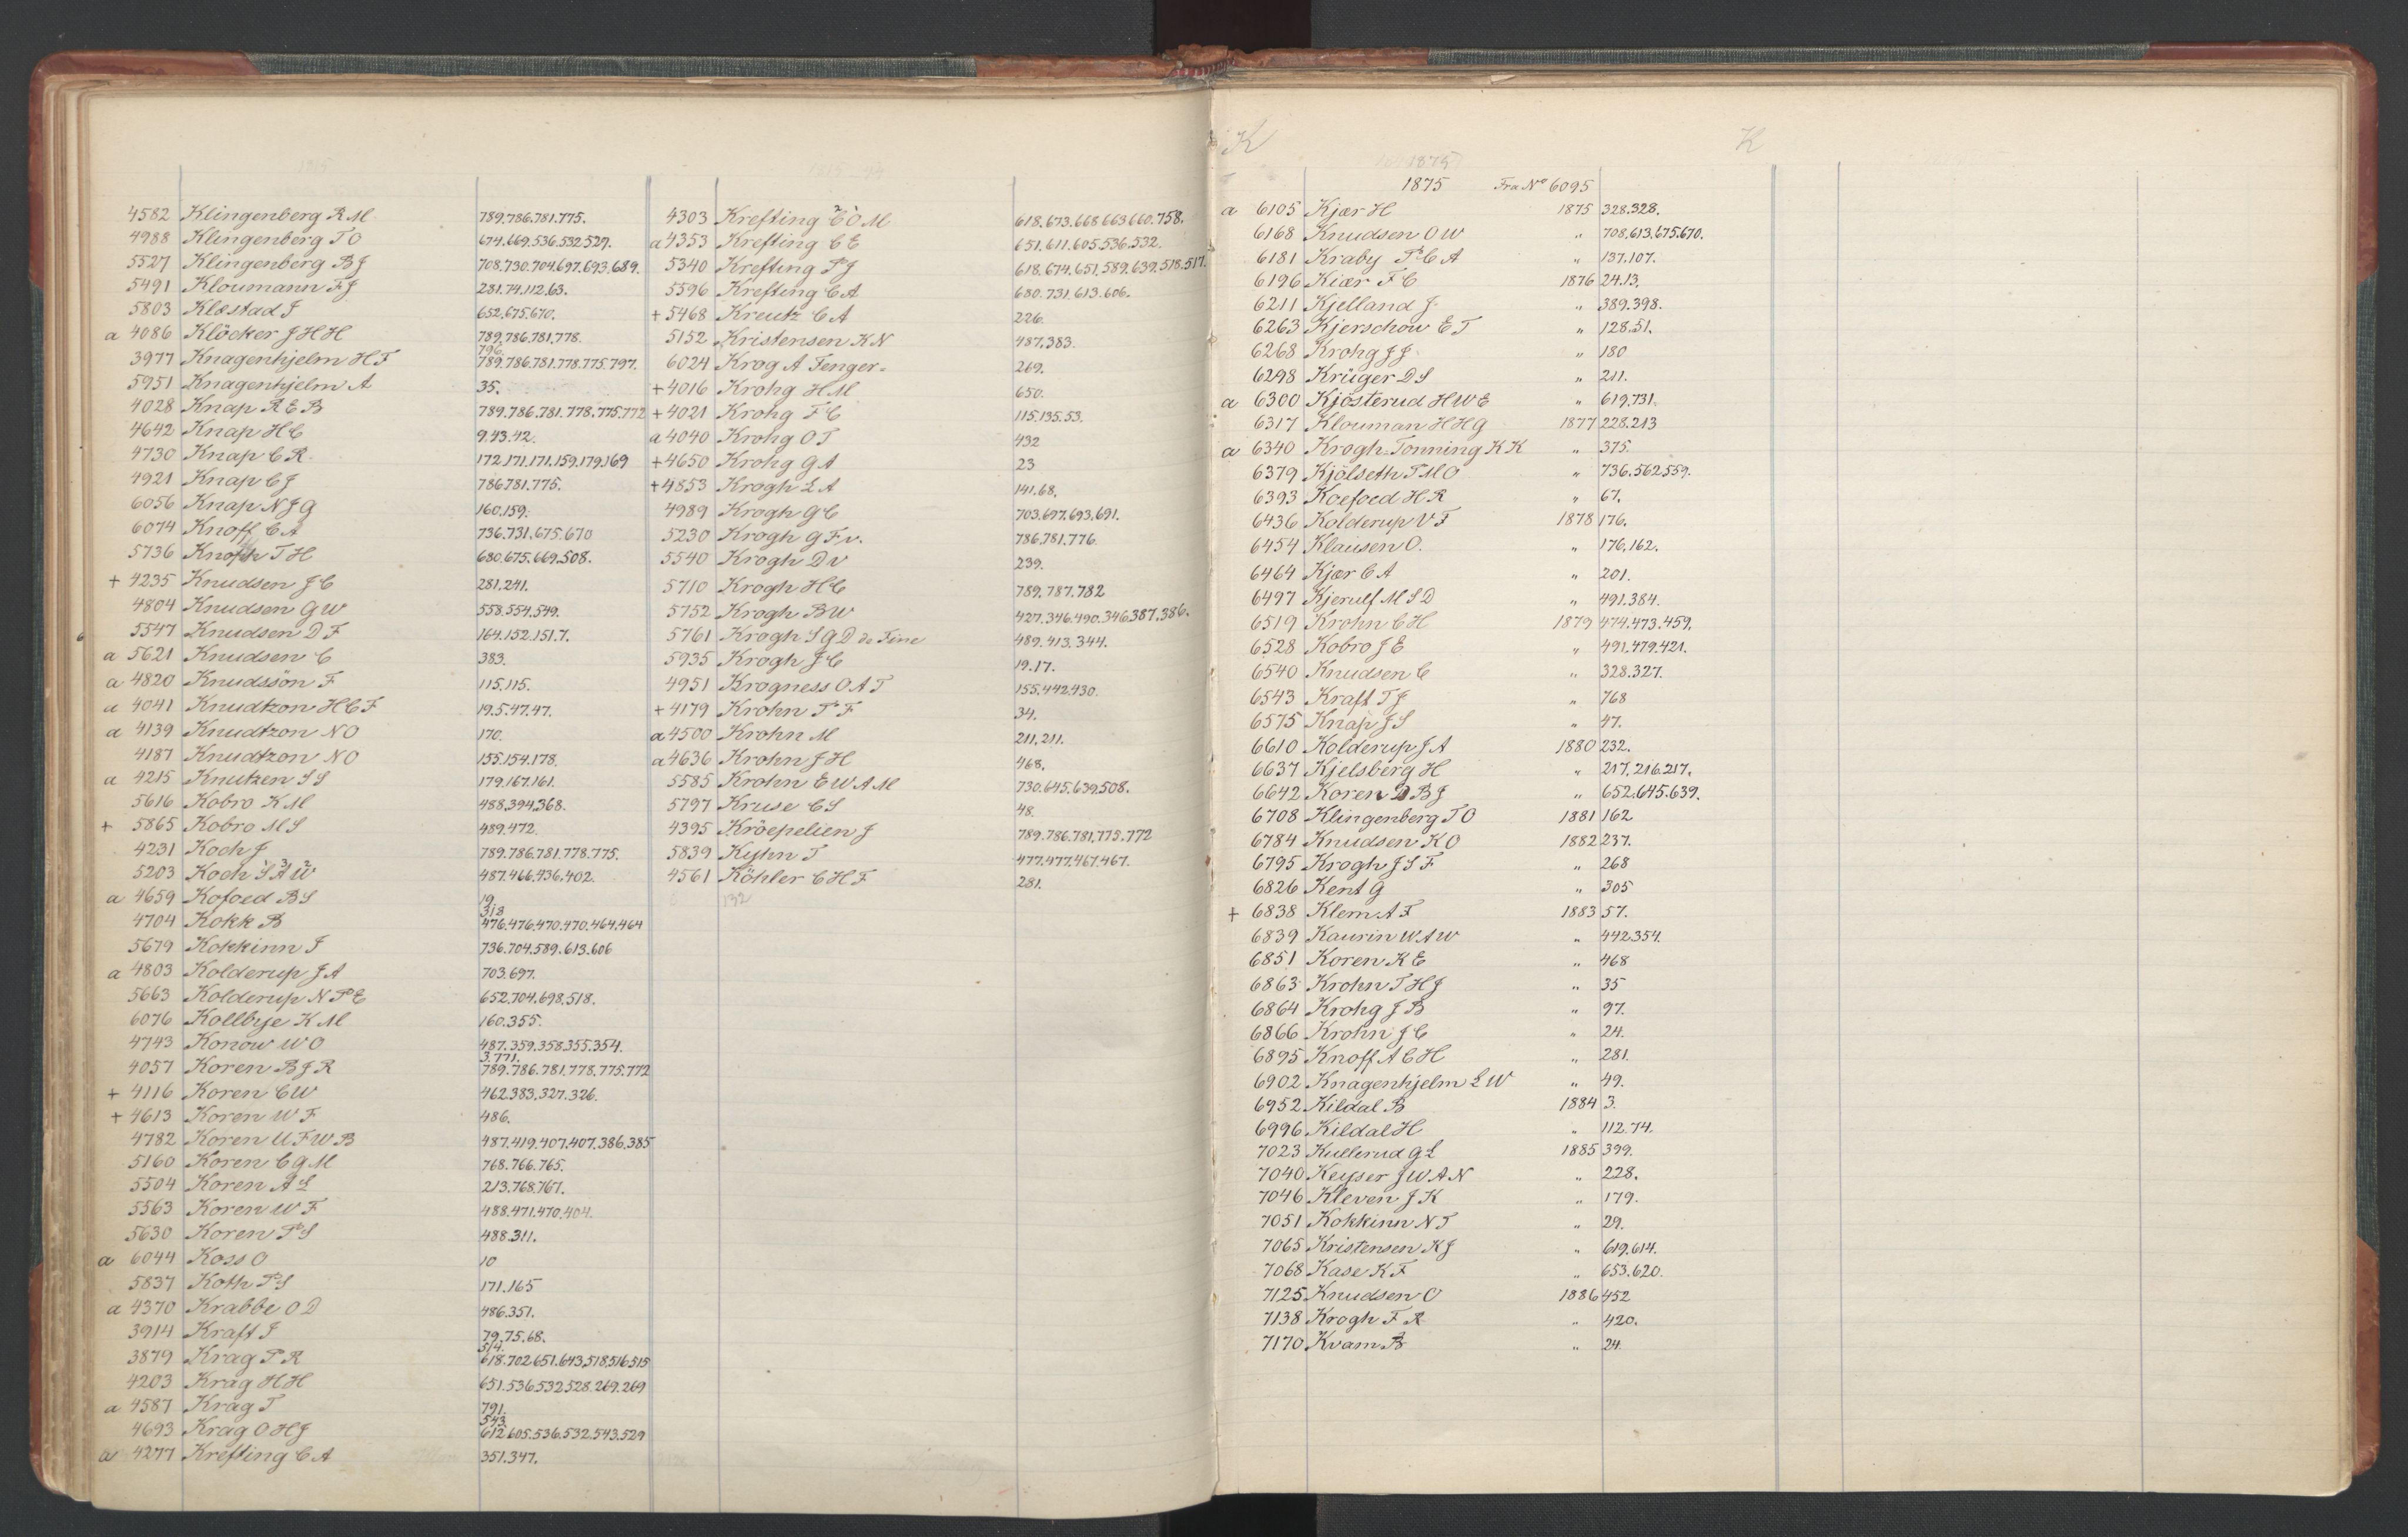 4582 Klingenberg R M 789.786.781.775.
4988 Klingenberg T O 674.669.536.532.529.
5527 Klingenberg B J 708.730.704.697.693.689.
5491 Kloumann F J 281.74.112.63.
5803 Klæstad J 652.675.670.
a 4086 Klöcker J H H 789.786.781.778.
796.
3977 Knagenhjelm H F 789.786.781.778.775.797.
5951 Knagenhjelm A 35.
4028 Knap R E B 789.786.781.778.775.772
4642 Knap H C 9.43.42.
4730 Knap C R 172.171.171.159.179.169
4921 Knap C J 786.781.775.
6056 Knap N J G 160.159.
6074 Knoff C A 736.731.675.670
5736 Knoph T H 680.675.669.508.
+ 4235 Knudsen J C 281.241.
4804 Knudsen G W 558.554.549.
5547 Knudsen D F 164.152.151.7.
a 5621 Knudsen C 383.
a 4820 Knudssön F 115.115.
a 4041 Knudtzon H C F 19.5.47.47.
a 4139 Knudtzon N O 170.
4187 Knudtzon N O 155.154.178.
a 4215 Knutzen S S 179.167.161.
5616 Kobro K M 488.394.368.
+ 5865 Kobro M S 489.472.
4231 Koch J 789.786.781.778.775.
5203 Koch S A W 487.466.436.402.
a 4659 Kofoed B S 19.
318
4704 Kokk B 476.476.470.470.464.464
5679 Kokkinn J 736.704.589.613.606
a 4803 Kolderup J A 703.697.
5663 Kolderup N P E 652.704.698.518.
6076 Kollbye K M 160.355.
4743 Konow W O 487.359.358.355.354.
3.771.
4057 Koren B J R 789.786.781.778.775.772
+ 4116 Koren C W 462.383.327.326.
+ 4613 Koren W F 486.
4782 Koren U F W B 487.419.407.407.386.385
5160 Koren C G M 768.766.765.
5504 Koren A L 213.768.767.
5563 Koren W F 488.471.470.404.
5630 Koren P S 488.311.
a 6044 Koss O 10
5837 Koth P S 171.165
a 4370 Krabbe O D 486.351.
3914 Kraft J 79.75.68.
514.
3879 Krag P R 618.702.651.643.518.516.515
4203 Krag H H 651.536.532.528.269.269
a 4587 Krag T 791.
543.
4693 Krag O H J 612.605.536.532.543.529
a 4277 Krefting C A 351.347.
4303 Krefting C O M 618.673.668.663.660.758.
a 4353 Krefting C E 651.611.605.536.532.
5340 Krefting P J 618.674.651.589.639.518.517.
5596 Krefting C A 680.731.613.606.
+ 5468 Kreutz C A 226.
5152 Kristensen K N 487.383.
6024 Krog A Fenger- 269.
+ 4016 Krohg H M 650.
+ 4021 Krohg F C 115.135.53.
a 4040 Krohg O T 432
+ 4650 Krohg G A 23
+ 4853 Krogh L A 141.68.
4989 Krogh G C 703.697.693.691.
5230 Krogh G F v. 786.781.776.
5540 Krogh D v 239.
5710 Krogh H C 789.787.782
5752 Krogh B W 427.346.490.346.387.386.
5761 Krogh S G D de Fine 489.413.344.
5935 Krogh J C 19.17.
4951 Krogness O A T 155.442.430.
+ 4179 Krohn P F 34.
a 4500 Krohn M 211.211.
a 4636 Krohn J H 468.
5585 Krohn E W A M 730.645.639.508.
5797 Kruse C S 48.
4395 Kröepelien J 789.786.781.775.772
5839 Kyhn T 477.477.467.467.
4561 Köhler C H F 281.
132
K K
1875
1875 Fra No 6095
a 6105 Kjær H 1875 328.328.
6168 Knudsen O W " 708.613.675.670.
6181 Kraby P C A " 137.107.
6196 Kiær F C 1876 24.13.
6211 Kjelland J " 389.398.
6263 Kjerschow E T " 128.51.
6268 Krohg J J " 180
6298 Krüger D S " 211.
a 6300 Kjösterud H W E " 619.731.
6317 Klouman H H G 1877 228.213
a 6340 Krogh-Tonning K K " 375.
6379 Kjölseth P M O " 736.562.559.
6393 Koefoed H R " 67.
6436 Kolderup V F 1878 176.
6454 Klausen O. " 176.162.
6464 Kjær C A " 201.
6497 Kjerulf M S D " 491.384.
6519 Krohn C H 1879 474.473.459.
6528 Kobro J E " 491.479.421.
6540 Knudsen C " 328.327.
6543 Kraft T J " 768
6575 Knap J S " 47.
6610 Kolderup J A 1880 232.
6637 Kjelsberg H " 217.216.217.
6642 Koren D B J " 652.645.639.
6708 Klingenberg T O 1881 162
6784 Knudsen K O 1882 237.
6795 Krogh J S F " 268
6826 Kent G " 305
+ 6838 Klem A F 1883 57.
6839 Kaurin W A W " 442.354.
6851 Koren K E " 468
6863 Krohn T H J " 35
6864 Krohg J B " 97.
6866 Krohn J C " 24.
6895 Knoff A C H " 281.
6902 Knagenhjelm L W " 49.
6952 Kildal B 1884 3.
6996 Kildal H " 112.74.
7023 Kullerud G L 1885 399.
7040 Keyser J W A N " 228.
7046 Kleven J K " 179.
7051 Kokkinn N T " 29.
7065 Kristensen K J " 619.614.
7068 Kase K F " 653.620.
7125 Knudsen O 1886 452
7138 Krogh F R " 420.
7170 Kvam B " 24.